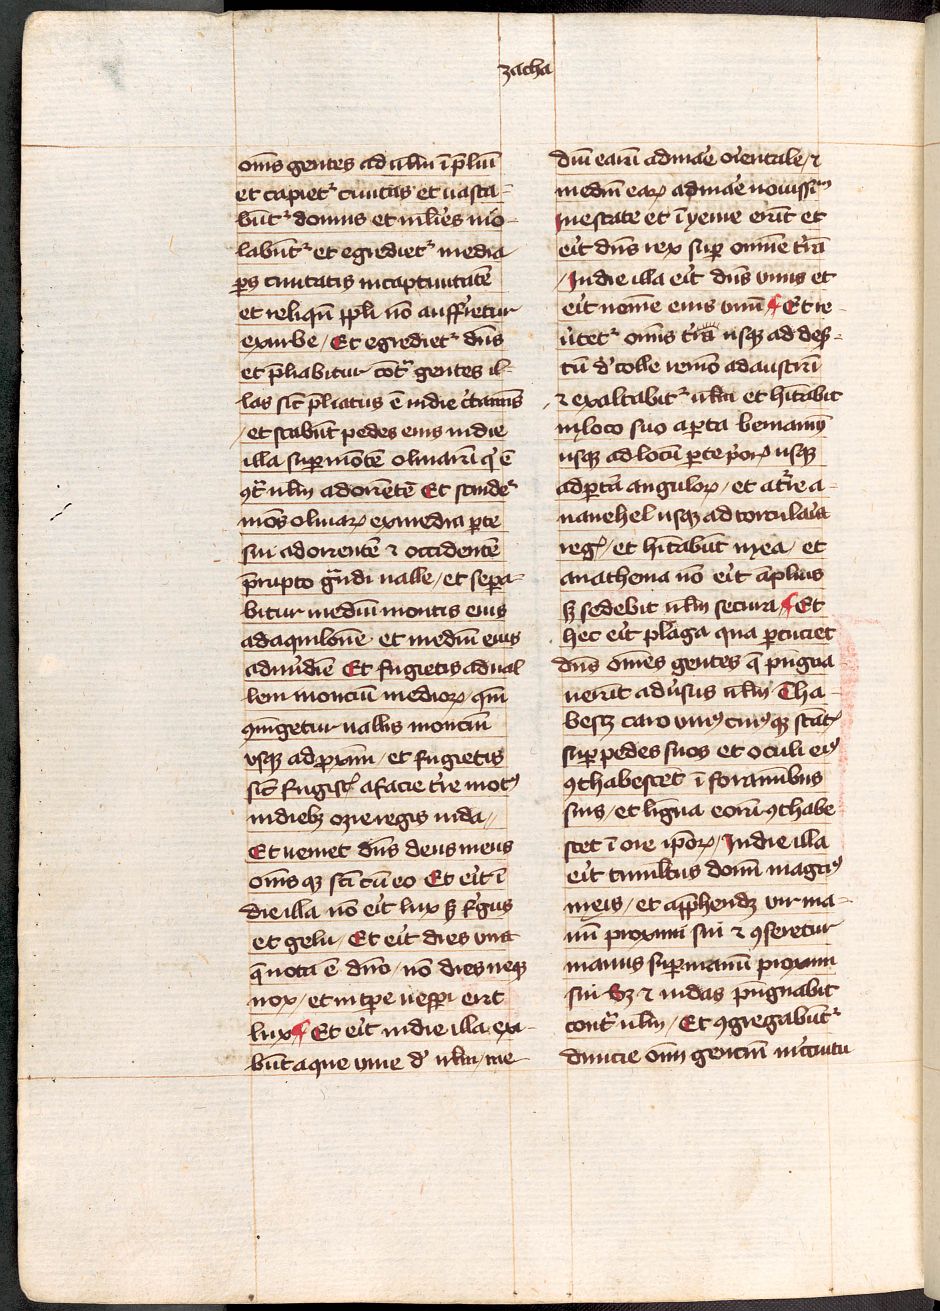 zacha
om̄s gentes ad ilr̄m ī p̄liū
et capiet᷑ ciuitas et uasta-
būt᷑ domus et ml̄ies uio-
labūt᷑ et egrediet᷑ media
ꝑs ciuitatis in captiuitatē
et reliqm̄ ppl̄i nō aufferetur
ex urbe / Et egrediet᷑ dn̄s
et p̄liabitur cot͛ gentes il-
las sic̄ p̄liatus ē in die c̄taminis
/ et stabūt pedes eius in die
illa suꝑ mōtē oliuaꝝ q̇ ē
ꝯt͛ ilr̄m ad oriētē Et scindet᷑
mōs oliuaꝝ ex media ꝑte
sui ad orientē ⁊ occidentē
p̄rupto g͛ndi ualle / et sepa-
bitur mediū montis eius
ad aquilonē et mediū eius
ad m̄idiē Et fugietis ad ual
lem monciū medioꝝ qm̄
ꝯiūgetur uallis monciū
vsqꝫ ad pxm̄ / et fugietis
sic̄ fugist᷑ a facie t̄re motꝰ
in diebꝫ ozie regis iuda //
Et ueniet dn̄s deus meus
om̄sqꝫ sc̄i cū eo Et eīt ī
die illa nō eīt lux sꝫ f̄gus
et gelu / Et eīt dies una
q̄ nota ē dn̄o / nō dies neqꝫ
nox / et in tp̄e uesp̄i erit
lux ¶ Et eīt in die illa exi-
būt aque uiue d' ilr̄m / me
diū eaꝝ ad mar̄e orientale / ⁊
mediū eaꝝ ad mar̄e nouissimū
In estate et ī yeme er̄it et
eīt dn̄s rex suꝑ omnē t̄rā
/ In die illa eīt dn̄s vnus et
eīt nomē eius vnū ¶ Et re-
u̇tet᷑ om̄is t̄ra usqꝫ ad des̄-
tū d' colle remō ad austrū
⁊ exaltabit᷑ ilr̄m et hītabit
in loco suo a porta beniamȳ
usqꝫ ad locū porte p̄oꝝ usqꝫ
ad portā anguloꝝ / et a t̄re a-
nanehel usqꝫ ad torculaīa
reg᷑ / et hītabūt in ea / et
anathema nō eīt āplius
sꝫ sedebit ilr̄m secura ¶ Et
hec eīt plaga qua ꝑcuciet
dn̄s om̄es gentes q̄ pūgna
uer̄it adu̇sus ilr̄m Tha-
bescꝫ caro vniꝰcuiꝰqꝫ stāt᷑
suꝑ pedes suos et oculi eiꝰ
ꝯthabescēt ī foraminibus
suis / et ligua eoꝝ ꝯthabe
scet ī ore ip̄oꝝ / In die illa
eīt tumultus domi magnꝰ
in eis / et app̄hendꝫ uir ma-
nū proximi sui ⁊ ꝯseretur
manus suꝑ manū proximi
sui Sꝫ ⁊ iudas pūgnabit
cont͛ ilr̄m / Et ꝯgregabūt᷑
diuicie om̄ gentiū in ciuitu